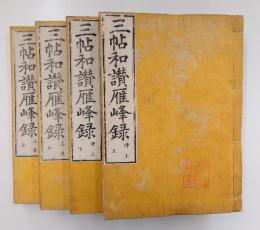 三帖和讃雁峰録 浄土 上
三帖和讃雁峰録 浄土 下
三帖和讃雁峰録
三帖和讃雁峰録